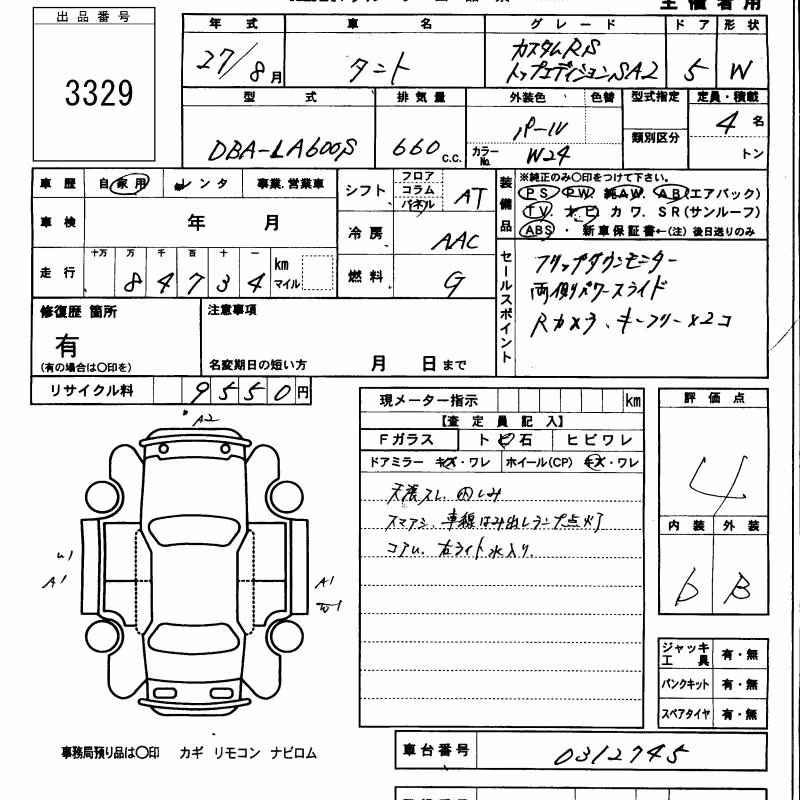 主催者用
出品番号
3329
年式 車名 グレード ドア 形状
27/8月 タント カスタムRS
トップエディションSA2 5 W
型式 排気量 外装色 色替 型式指定 定員・積載
DBA-LA600S 660c.c. パール カラーNo. W24 類別区分 4名
トン
車歴 自家用 レンタ 事業.営業車
車検 年 月
走行 十万 万 千 百 十 一
84734 km マイル
シフト フロア コラム パネル AT
冷房 AAC
燃料 G
装備品 ※純正のみ〇印をつけて下さい。
PS PW. 純AW. AB(エアバック)
TV. ナビ カワ. SR(サンルーフ)
ABS ・ 新車保証書←(注) 後日送りのみ
セールスポイント
フリップダウンモニター
両側パワースライド
Rカメラ、キーフリー×2コ
修復歴 箇所
有
(有の場合は〇印を)
注意事項
名変期日の短い方 月 日まで
リサイクル料 9550円
現メーター指示 km
【査定員記入】
Fガラス トビ石 ヒビワレ
ドアミラー キズ・ワレ ホイール(CP) キズ・ワレ
天張スレ.
スマアシ. 車線はみ出しランプ点灯
コアU. 右ライト水入り.
評価点
4
内装 外装
b B
A2
U1
A1
A1
ジャッキ工具 有・無
パンクキット 有・無
スペアタイヤ 有・無
事務局預り品は〇印 カギ リモコン ナビロム
車台番号 0312745